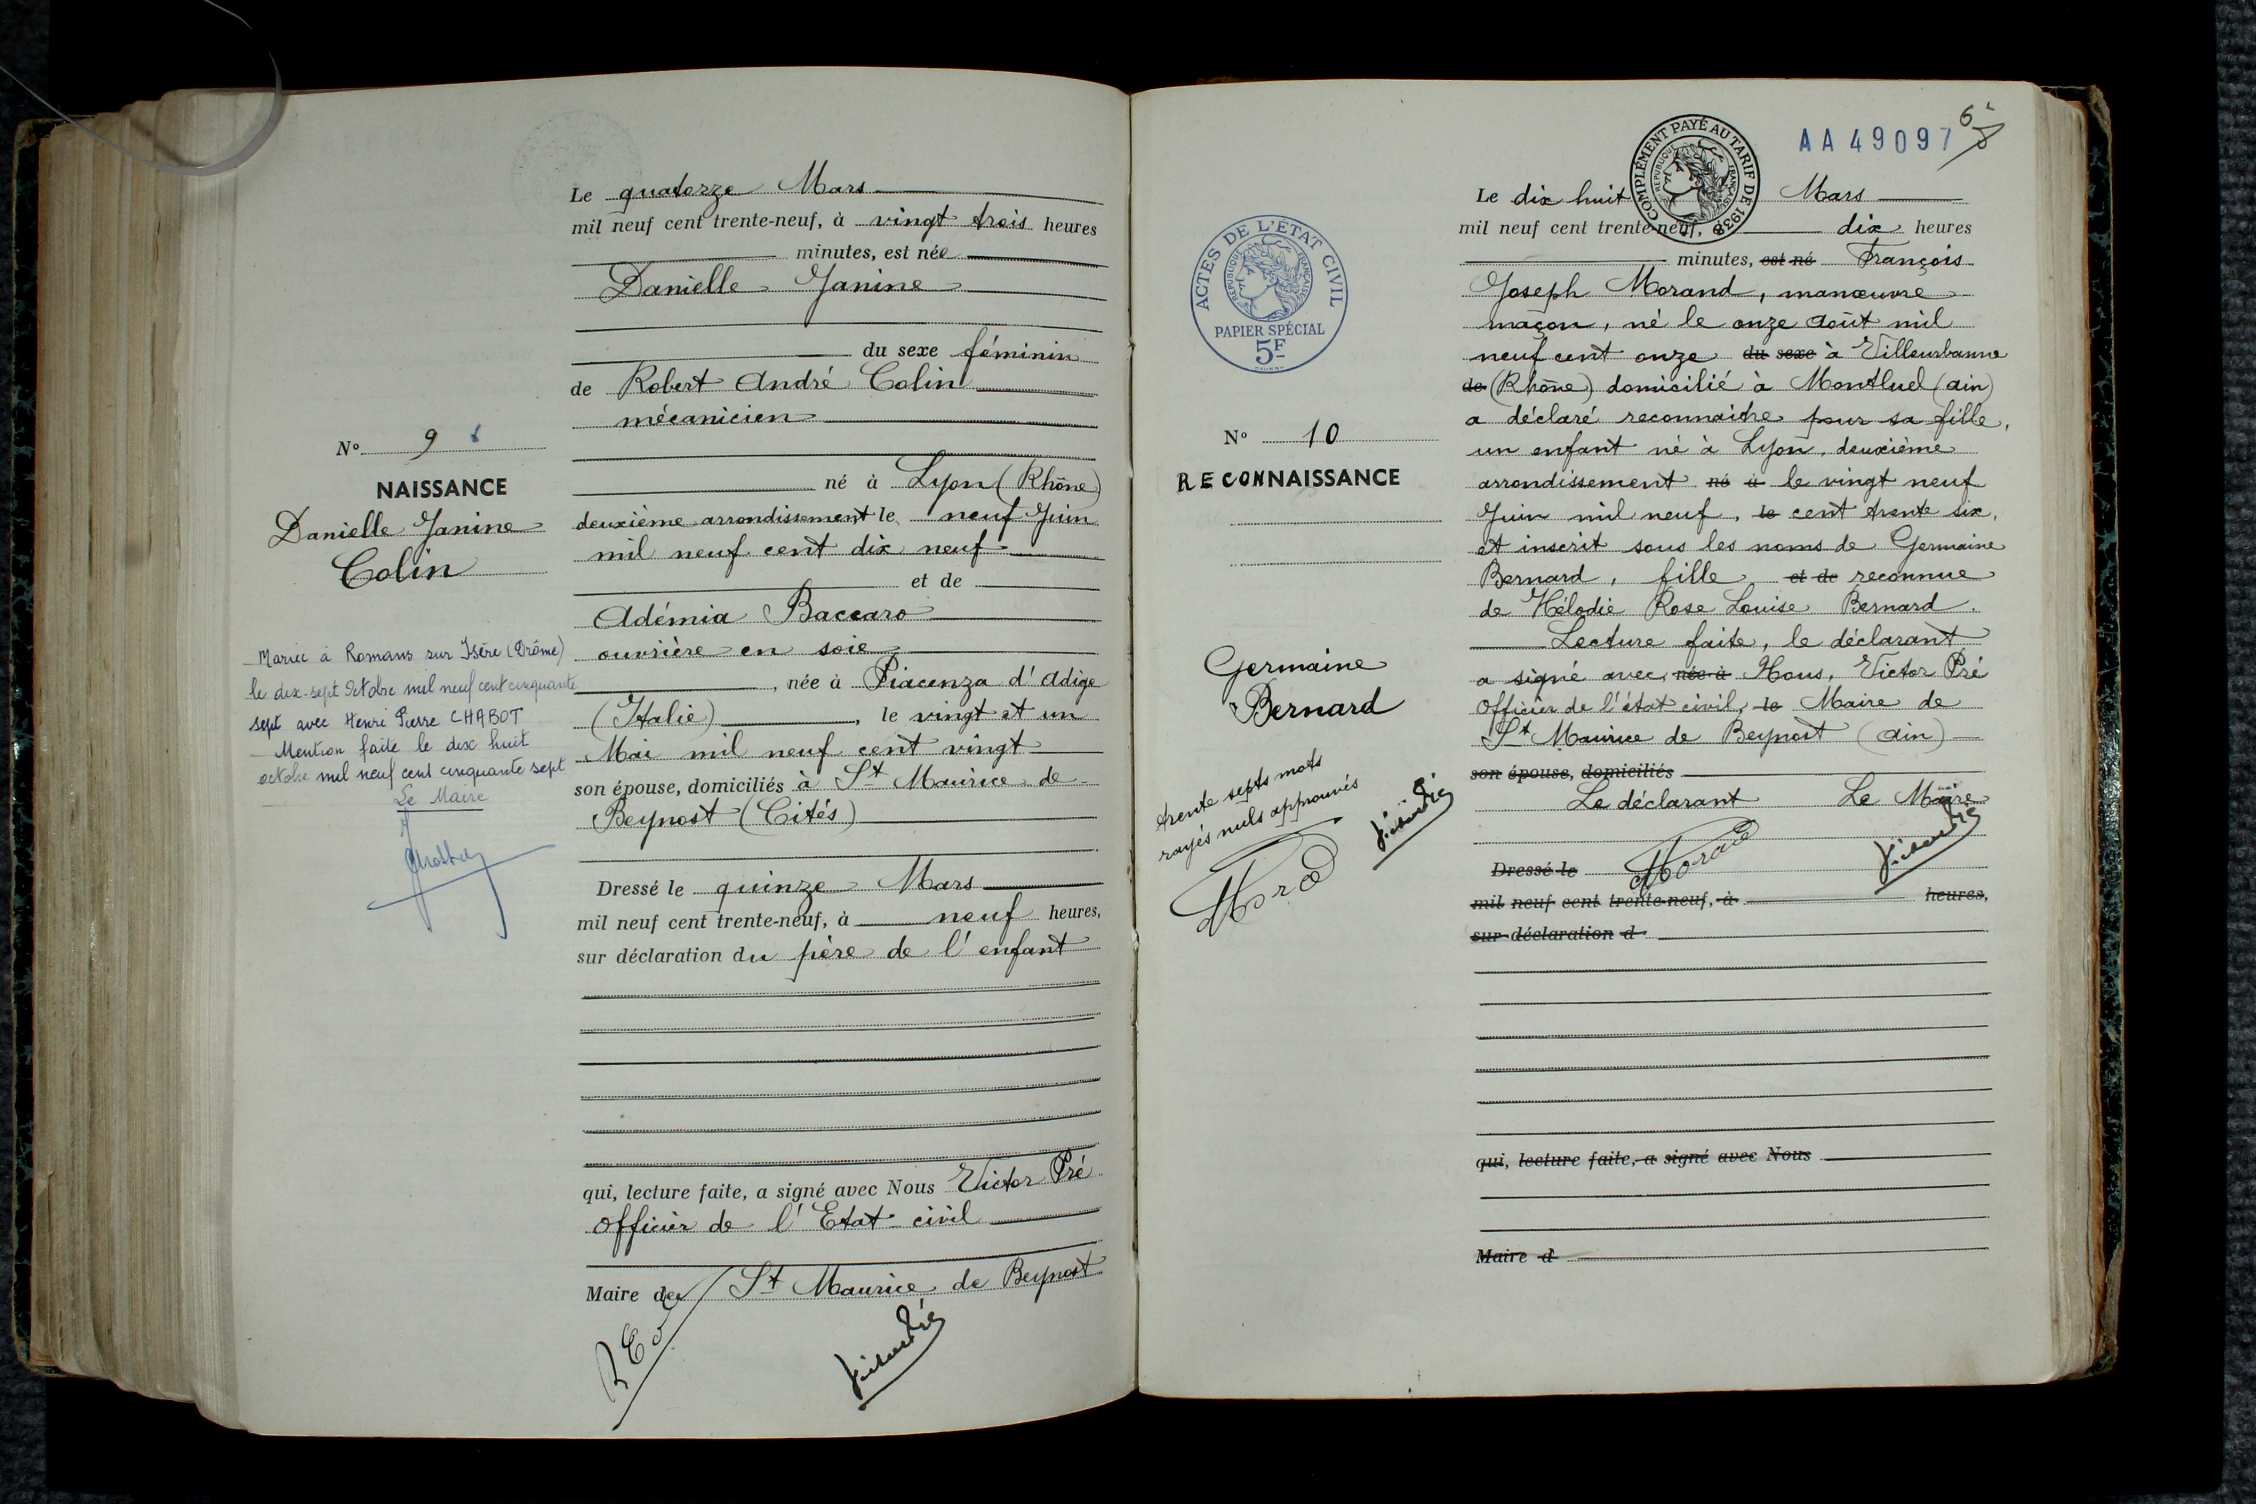 Le quatorze Mars
mil neuf cent trente-neuf, à vingt trois heures
minutes, est née
Danielle Janine
du sexe féminin
de Robert André Colin
mécanicien
né à Lyon (Rhône)
deuxième arrondissement le neuf Juin
mil neuf cent dix neuf
et de
Adémia Baccaro
ouvrière en soie
, née à Piacenza d'Adige
(Italie) , le vingt et un
Mai mil neuf cent vingt
son épouse, domiciliés à St Maurice de
Beynost (Cités)
Dressé le quinze Mars
mil neuf cent trente-neuf, à neuf heures,
sur déclaration du père de l'enfant
qui, lecture faite, a signé avec Nous Victor Pré
Officier de l'Etat civil
Maire de St Maurice de Beynost
N° 9
NAISSANCE
Danielle Janine
Colin
Mariée à Romans sur Isère (Drôme)
le dix-sept Octobre mil neuf cent cinquante
sept avec Henri Pierre CHABOT
Mention faite le dix huit
octobre mil neuf cent cinquante sept
Le Maire
AA 49097
COMPLÉMENT PAYÉ AU TARIF DE 1938
RÉPUBLIQUE FRANÇAISE
ACTES DE L'ÉTAT CIVIL
RÉPUBLIQUE FRANÇAISE
PAPIER SPÉCIAL
5F
N° 10
RECONNAISSANCE
Germaine
Bernard
trente septs mots
rayés nuls approuvés
Le dix huit Mars
mil neuf cent trente-neuf, dix heures
minutes, est né François
Joseph Morand, manœuvre
maçon, né le onze Août mil
neuf cent onze du sexe à Villeurbanne
de (Rhône) domicilié à Montluel (Ain)
a déclaré reconnaitre pour sa fille,
un enfant né à Lyon, deuxième
arrondissement né à le vingt neuf
Juin mil neuf, le cent trente six,
et inscrit sous les noms de Germaine
Bernard, fille et de reconnue
de Mélodie Rose Louise Bernard.
Lecture faite, le déclarant
a signé avec, née à Nous, Victor Pré
Officier de l'état civil, le Maire de
St Maurice de Beynost (Ain)
son épouse, domiciliés
Le déclarant Le Maire
Dressé le
mil neuf cent trente-neuf, à heures,
sur déclaration d
qui, lecture faite, a signé avec Nous
Maire d